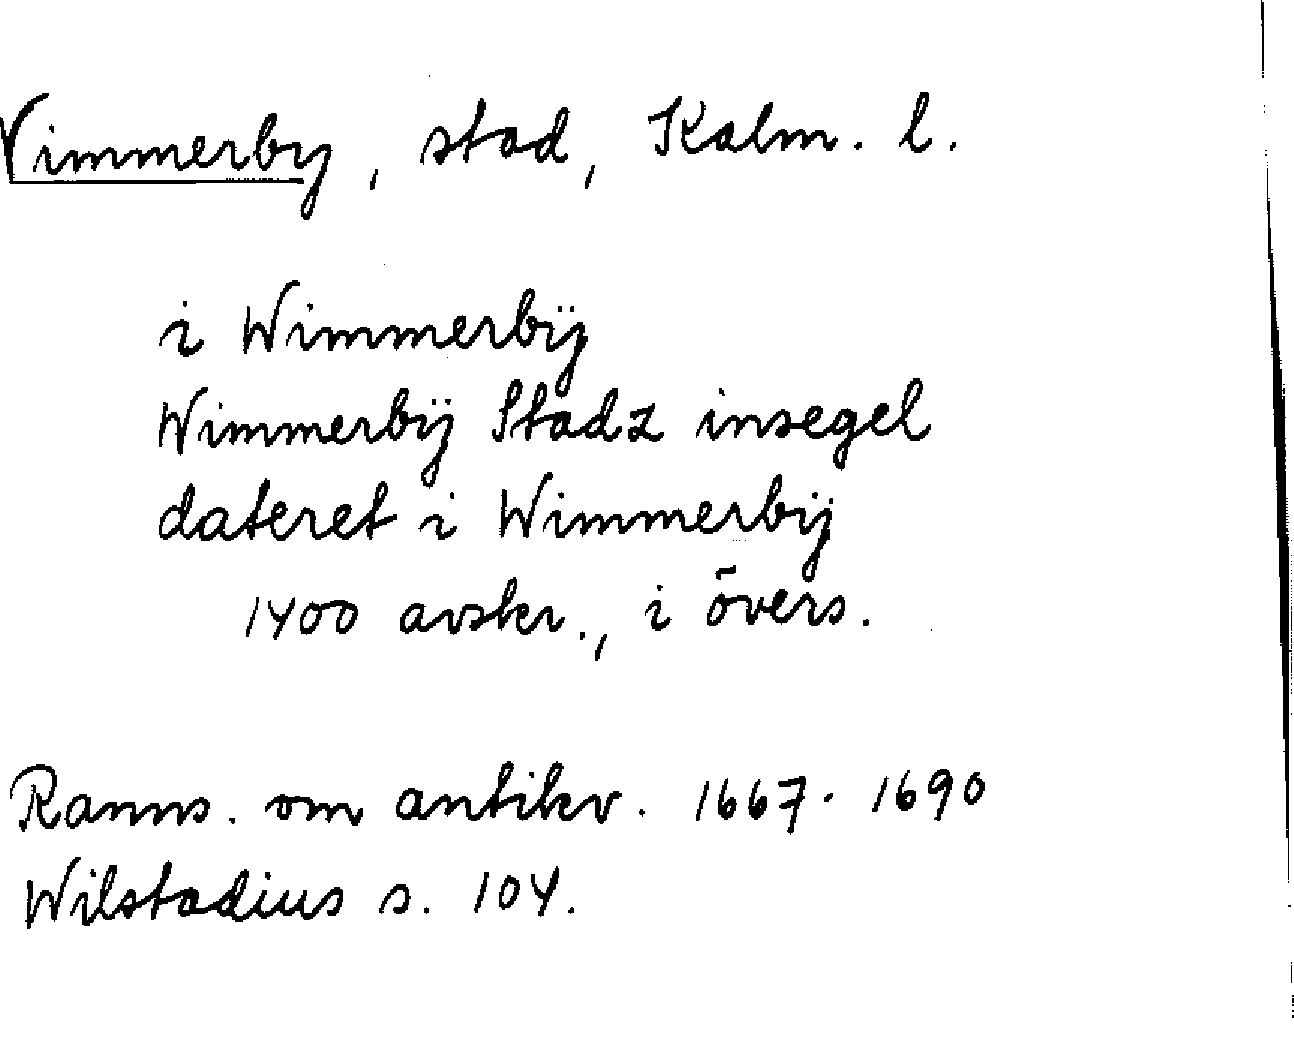 Vimmerby, stad, Kalm. l.
i Wimmerbÿ
Wimmerbÿ Stadz insegel
dateret i Wimmerbÿ
1400 avskr., i övers.
Ranns. om antikv. 1667-1690
Wilstadius s. 104.